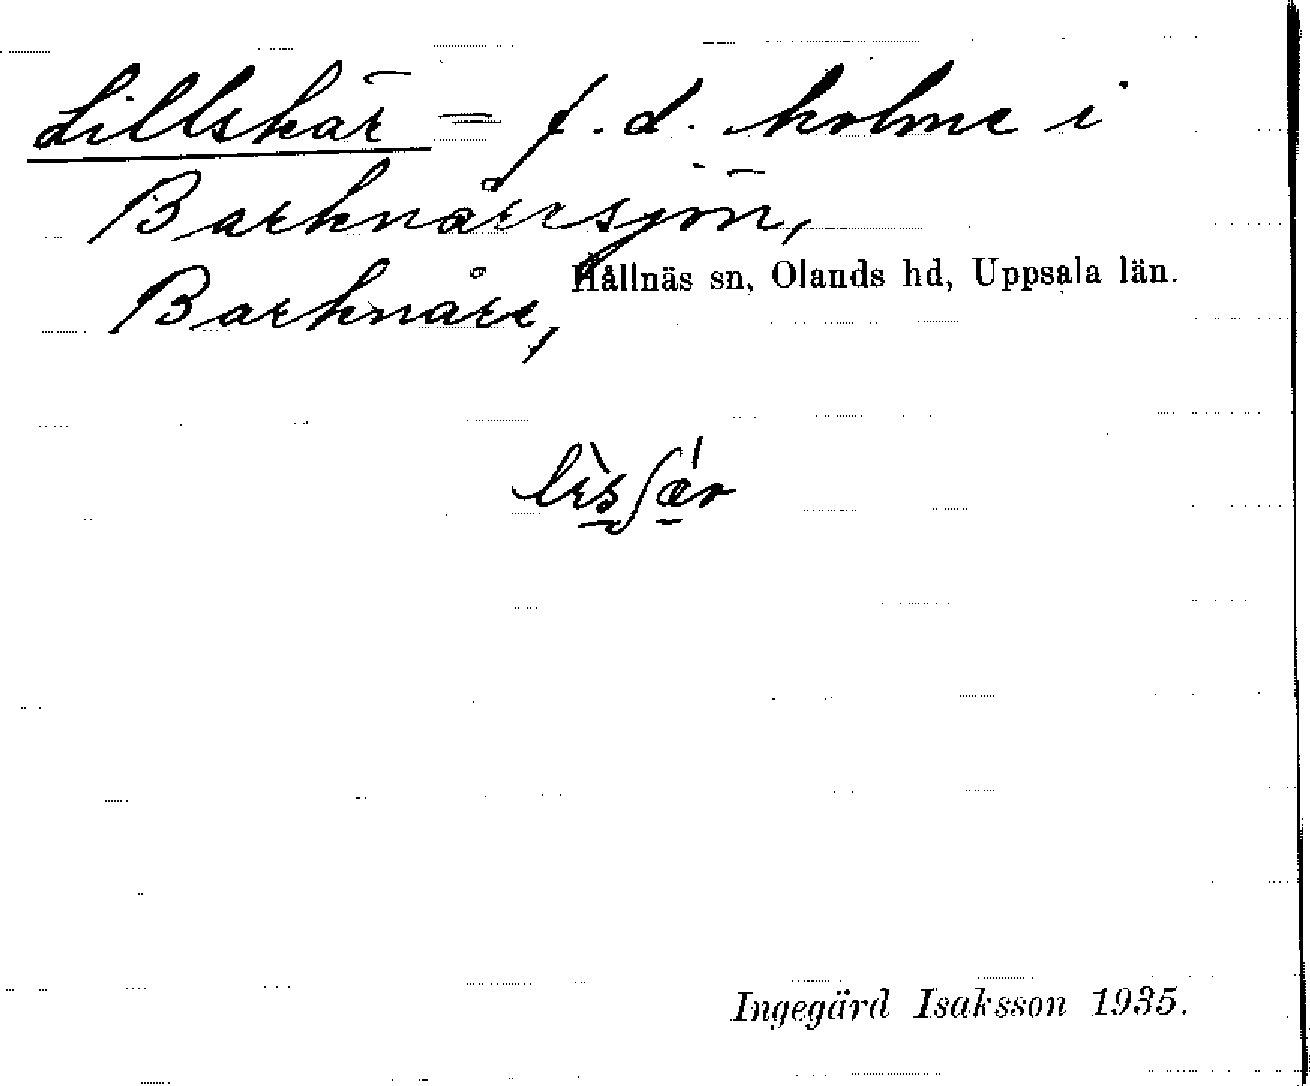 Lillskär = f. d. holme i
Barknårrsjön,
Barknårr,
Hållnäs sn, Olands hd, Uppsala län.
Ingegärd Isaksson 1935.